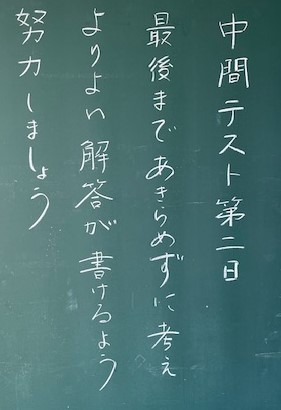 中間テスト第二日
最後まであきらめずに考え
よりよい解答が書けるよう
努力しましょう